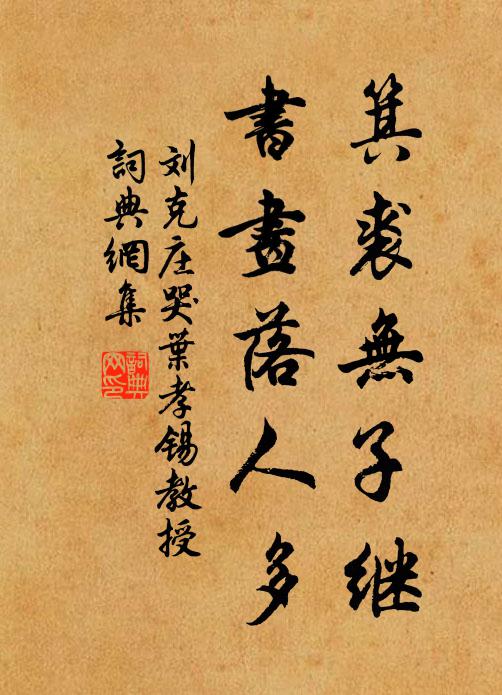 箕裘無子继
書畫落人多
刘克庄哭葉孝锡教授
詞典網集
詞典网印